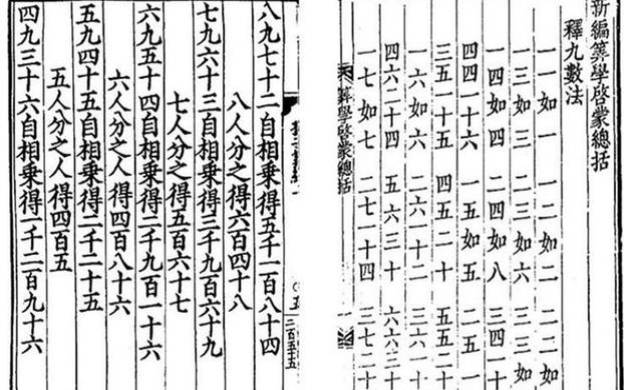 新編筭學啓蒙總括
釋九數法
一一如一 一二如二 二二如
一三如三 二三如六 三三如
一四如四 二四如八 三四一十
四四一十六 一五如五 二五一
三五一十五 四五二十 五五二十
一六如六 二六一十二 三六一十
四六二十四 五六三十 六六三十
一七如七 二七一十四 三七二十
筭學啓蒙總括
八九七十二自相乘得五千一百八十四
八人分之得六百四十八
七九六十三自相乘得三千九百六十九
七人分之得五百六十七
六九五十四自相乘得二千九百一十六
六人分之人得四百八十六
五九四十五自相乘得二千二十五
五人分之人得四百五
四九三十六自相乘得一千二百九十六